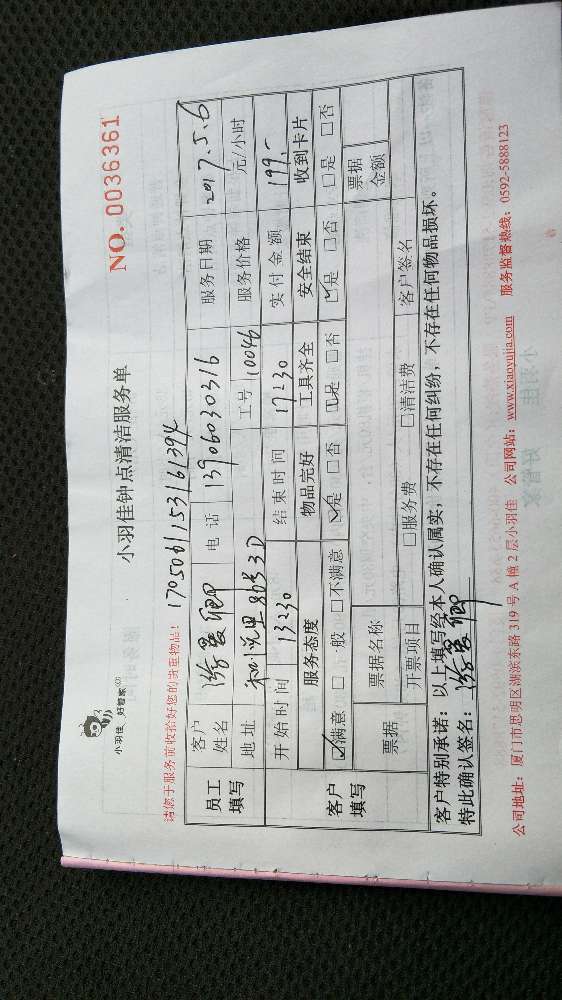 小羽佳 好管家
小羽佳钟点清洁服务单
NO. 0036361
请您于服务前收拾好您的贵重物品！ 1705061153161394
员工填写 客户姓名 卿 电话 13906030316 服务日期 2017.5.6
地址 号3D 工号 10046 服务价格 元/小时
开始时间 13:30 结束时间 17:30 实付金额 199.-
客户填写 服务态度 物品完好 工具齐全 安全结束 收到卡片
☑满意 □一般 □不满意 ☑是 □否 ☑是 □否 ☑是 □否 □是 □否
票据 票据名称 票据金额
开票项目 □服务费 □清洁费 客户签名
客户特别承诺：以上填写经本人确认属实，不存在任何纠纷，不存在任何物品损坏。
特此确认签名： 卿
公司地址：厦门市思明区湖滨东路 319 号 A 幢 2 层小羽佳 公司网站：www.xiaoyujia.com 服务监督热线：0592-5888123